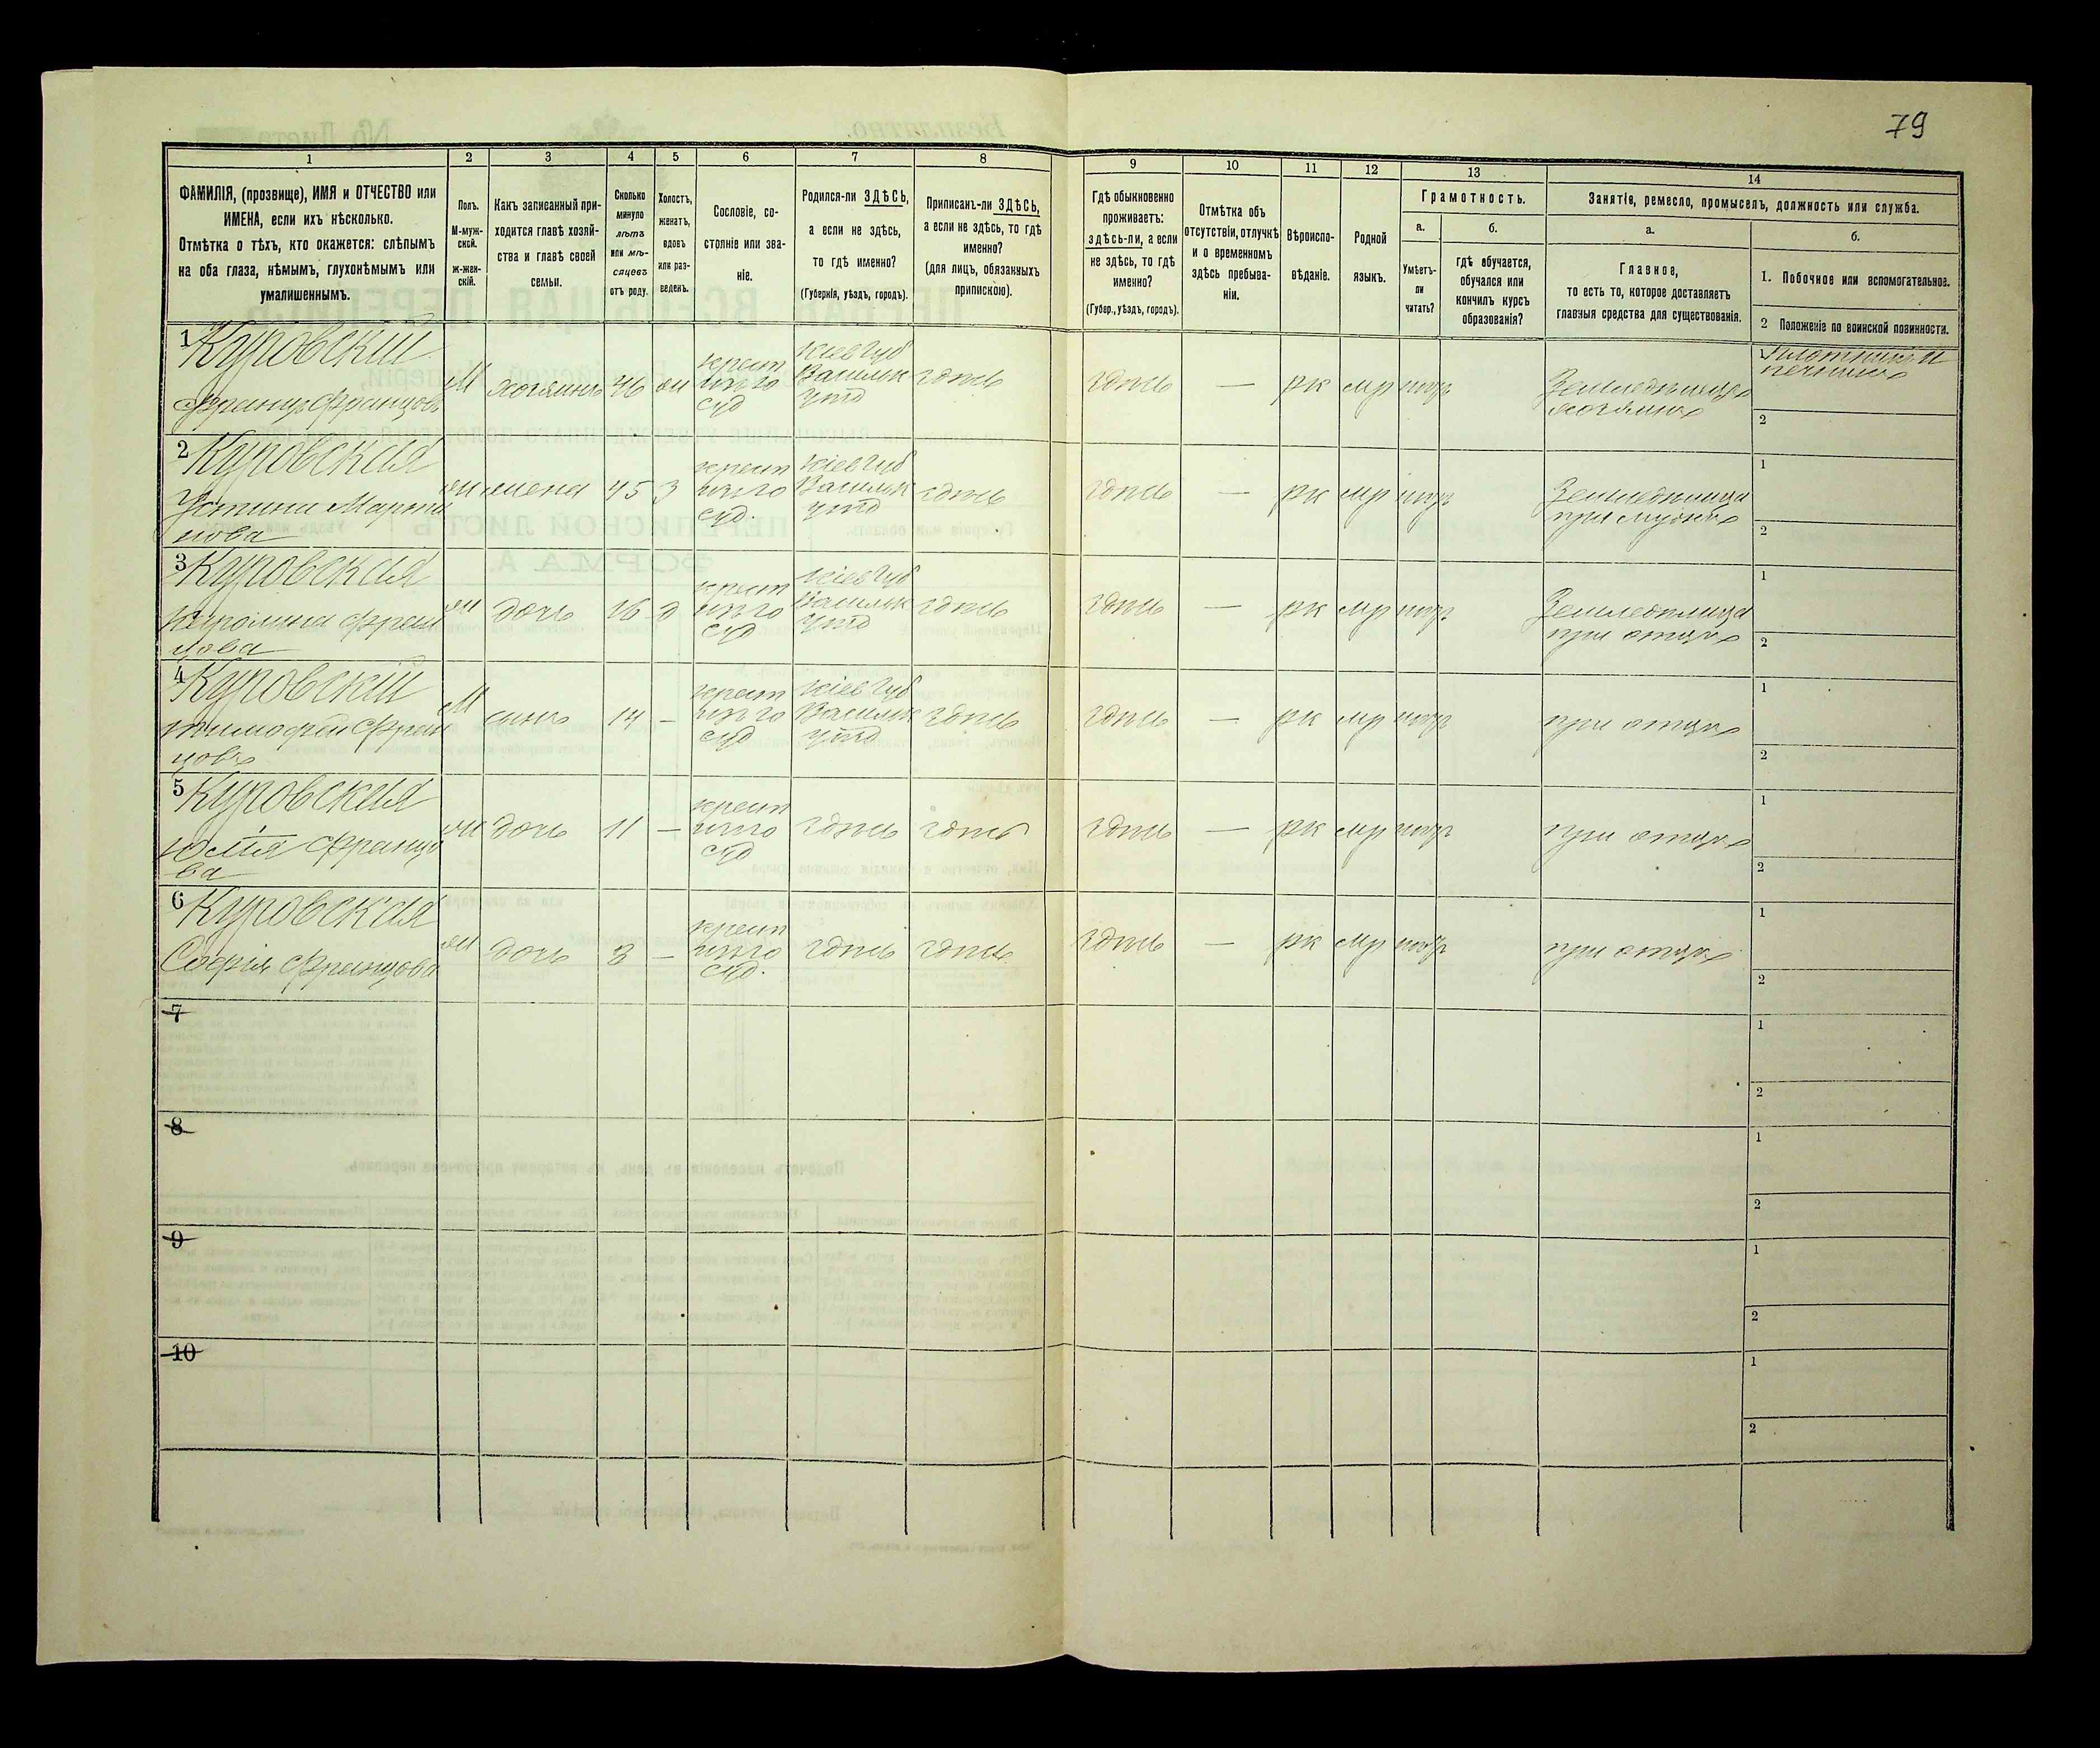 79
1 2 3 4 5 6 7 8 9 10 11 12 13 14
ФАМИЛІЯ, (прозвище), ИМЯ и ОТЧЕСТВО или
ИМЕНА, если ихъ нѣсколько.
Отмѣтка о тѣхъ, кто окажется: слѣпымъ
на оба глаза, нѣмымъ, глухонѣмымъ или
умалишеннымъ.
Полъ.
М-муж-
ской.
Ж-жен-
скій.
Какъ записанный при-
ходится главѣ хозяй-
ства и главѣ своей
семьи.
Сколько
минуло
лѣтъ
или мѣ-
сяцевъ
отъ роду.
Холостъ,
женатъ,
вдовъ
или раз-
веденъ.
Сословіе, со-
стояніе или зва-
ніе.
Родился-ли ЗДѢСЬ,
а если не здѣсь,
то гдѣ именно?
(Губернія, уѣздъ, городъ).
Приписанъ-ли ЗДѢСЬ,
а если не здѣсь, то гдѣ
именно?
(для лицъ, обязанныхъ
припискою).
Гдѣ обыкновенно
проживаетъ:
здѣсь-ли, а если
не здѣсь, то гдѣ
именно?
(Губер., уѣздъ, городъ).
Отмѣтка объ
отсутствіи, отлучкѣ
и о временномъ
здѣсь пребыва-
ніи.
Вѣроиспо-
вѣданіе.
Родной
языкъ.
Грамотность.
а.
Умѣетъ-
ли
читать?
б.
гдѣ обучается,
обучался или
кончилъ курсъ
образованія?
Занятіе, ремесло, промыселъ, должность или служба.
а.
Главное,
то есть то, которое доставляетъ
главныя средства для существованія.
б.
1. Побочное или вспомогательное.
2 Положеніе по воинской повинности.
1 Куровскій
Францъ Францовъ
М
хозяинъ
46
крест
Кіев губ
Васильк
здѣсь
здѣсь
—
рк
Земледѣлецъ
хозяинъ
1
плотникъ и
печникъ
2
2 Куровская
Устина Марти
нова
жена
45
З
крест
Кіев губ
Васильк
здѣсь
здѣсь
—
рк
Земледѣлица
при мужѣ
1
2
3 Куровская
Каролина Фран
цова
дочь
16
крест
Кіев губ
Васильк
здѣсь
здѣсь
—
рк
Земледѣлица
при отцѣ
1
2
4 Куровскій
Тимофей Фран
цовъ
М
сынъ
14
—
крест
Кіев губ
Васильк
здѣсь
здѣсь
—
рк
при отцѣ
1
2
5 Куровская
Юлія Францо
ва
дочь
11
—
крест
здѣсь
здѣсь
здѣсь
—
рк
при отцѣ
1
2
6 Куровская
Софія Францова
дочь
3
—
крест
здѣсь
здѣсь
здѣсь
—
рк
при отцѣ
1
2
7
1
2
8
1
2
9
1
2
10
1
2